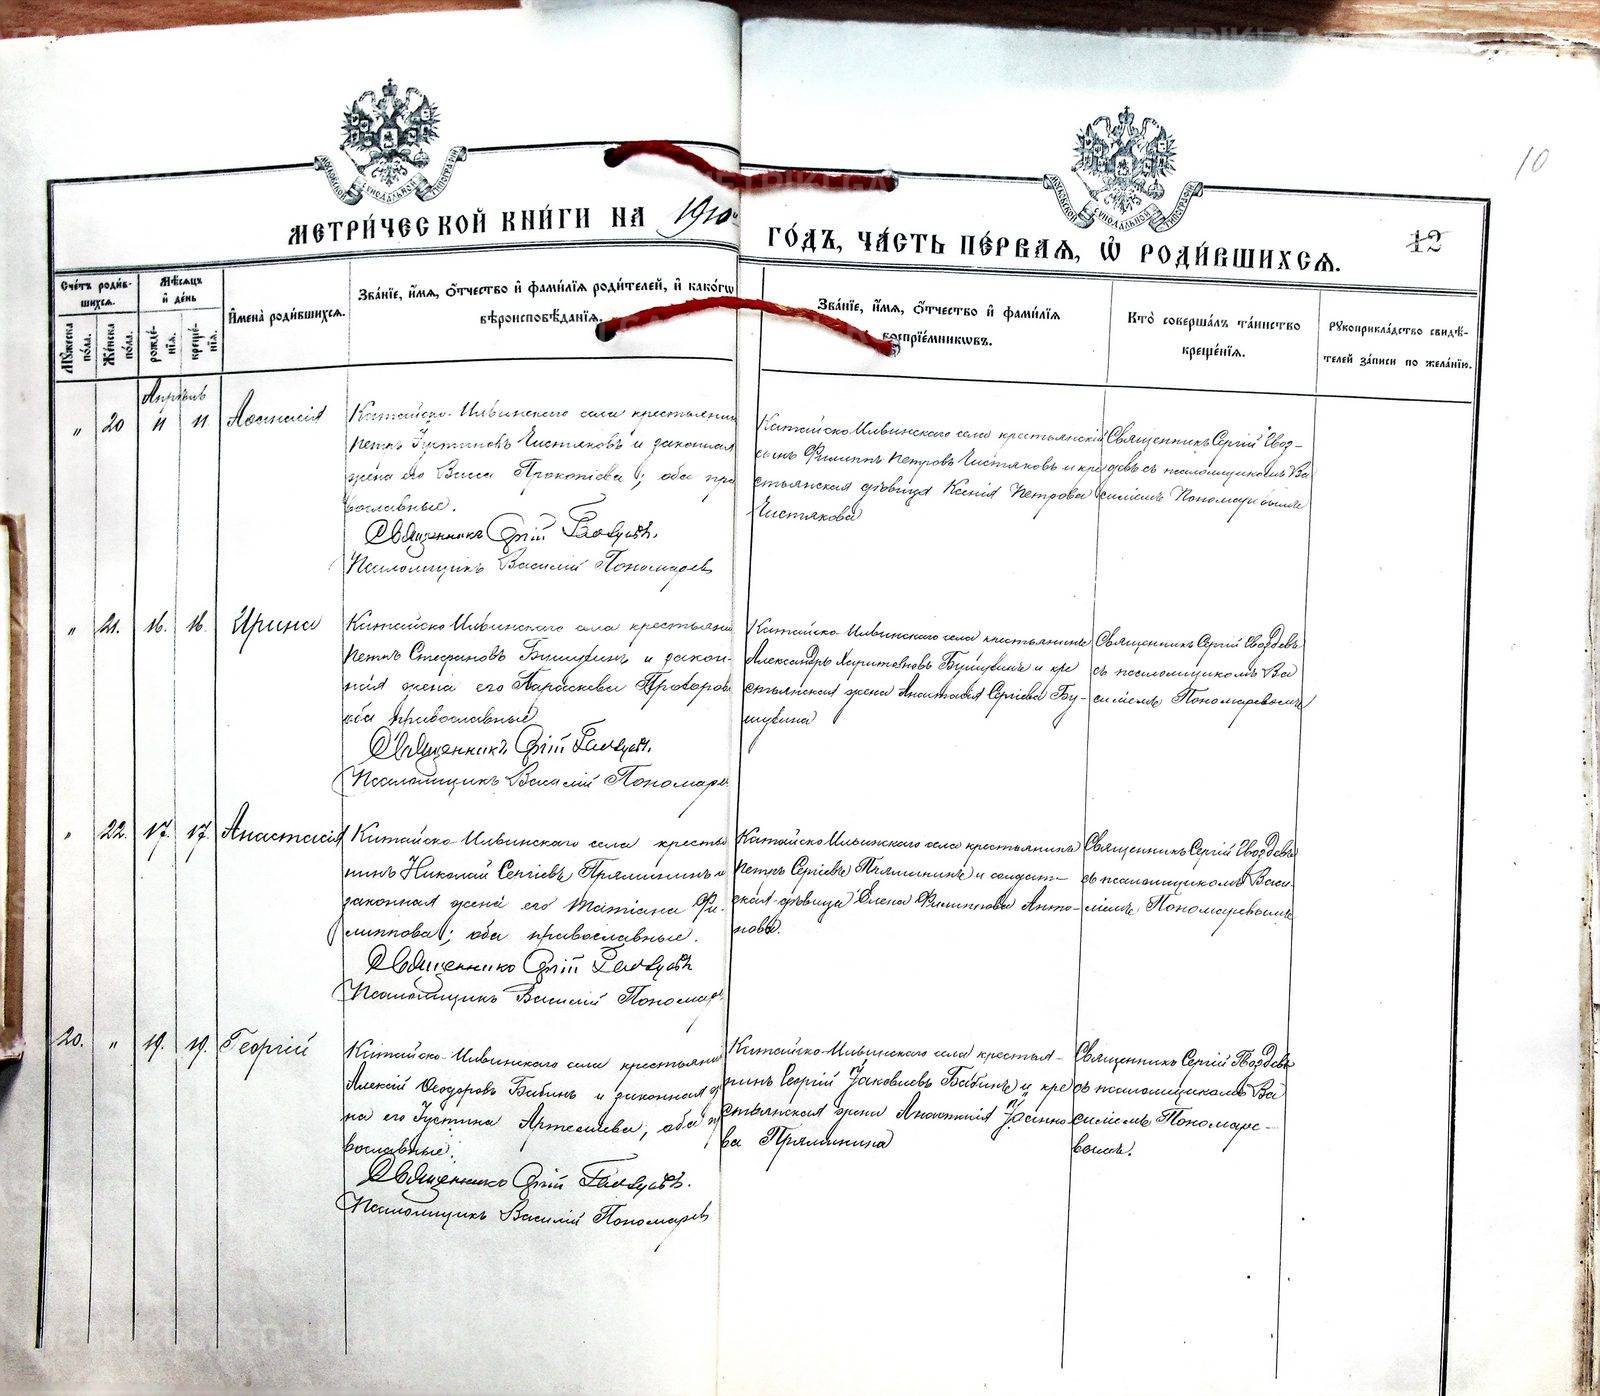 10
12
МЕТРИ́ЧЕСКОЙ КНИ́ГИ НА 1910 ГО́ДЪ, ЧА́СТЬ ПЕ́РВАѦ, Ѡ҆ РОДИ́ВШИХСѦ.
Сче́тъ роди́в-
шихсѧ.
Мꙋ́жеска по́ла.
Же́нска по́ла.
Мѣ́сѧцъ
и҆ де́нь
рожде́нїѧ.
креще́нїѧ.
И҆мена̀ роди́вшихсѧ.
Зва́нїе, и҆́мѧ, ѻ҆́тчество и҆ фами́лїѧ роди́телей, и҆ како́гѡ
вѣроисповѣ́данїѧ.
Зва́нїе, и҆́мѧ, ѻ҆́тчество и҆ фами́лїѧ
воспрїе́мникѡвъ.
Кто̀ соверша́лъ та́инство
креще́нїѧ.
Рꙋкоприкла́дство свидѣ́-
телей за́писи по жела́нїю.
Апрѣль
" 20 11 11 Аѳанасія
Китайско-Ильинскаго села крестьянинъ
Петръ Іустиновъ Чистяковъ и законная
жена его Васса Прокопіева; оба пра
вославные.
Священникъ Сергій Гвоздевъ.
Псаломщикъ Василій Пономаревъ
Китайско-Ильинскаго села крестьянскій
сынъ Филиппъ Петровъ Чистяковъ и кре
стьянская дѣвица Ксенія Петрова
Чистякова
Священникъ Сергій Гвоз-
девъ съ псаломщикомъ Ва
силіемъ Пономаревымъ
" 21. 16. 16. Ирина
Китайско-Ильинскаго села крестьянинъ
Петръ Стефановъ Бушуинъ и закон-
ная жена его Параскева Прохорова
оба православные
Священникъ Сергій Гвоздевъ.
Псаломщикъ Василій Пономарев
Китайско-Ильинскаго села крестьянинъ
Александръ Харитоновъ и кре
стьянская жена Анастасія Сергіева
Священникъ Сергій Гвоздевъ
съ псаломщикомъ Ва
силіемъ Пономаревымъ
" 22. 17. 17. Анастасія
Китайско-Ильинскаго села крестья
нинъ Николай Сергіевъ Прямининъ и
законная жена его Татіана Фи-
липпова; оба православные.
Священникъ Сергій Гвоздевъ
Псаломщикъ Василій Пономар
Китайско-Ильинскаго села крестьянинъ
Петръ Сергіевъ Пряминин и солдат-
ская дѣвица Елена Филиппова Анто-
нова.
Священникъ Сергій Гвоздевъ
съ псаломщикомъ Васи-
ліемъ Пономаревымъ
20. " 19. 19. Георгій
Китайско-Ильинскаго села крестьянин
Алексій Ѳеодоровъ Бабинъ и законная же
на его Іустина Артемьева, оба пра
вославные.
Священникъ Сергій Гвоздевъ.
Псаломщикъ Василій Пономарев
Китайско-Ильинскаго села крестья-
нинъ Георгій Іаковлевъ Бабинъ и кре
стьянская жена Анастасія
ва Пряминина
Священникъ Сергій Гвоздевъ
съ псаломщикомъ Ва
силіемъ Пономаре-
вымъ.